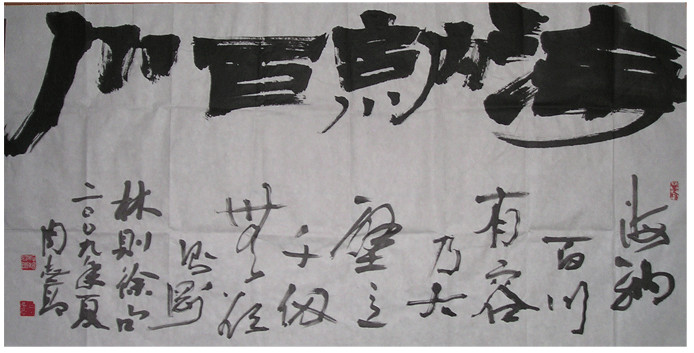 海納百川
海納
百川
有容
乃大
壁立
千仞
無欲
則剛
林則徐句
二〇〇九年夏
周